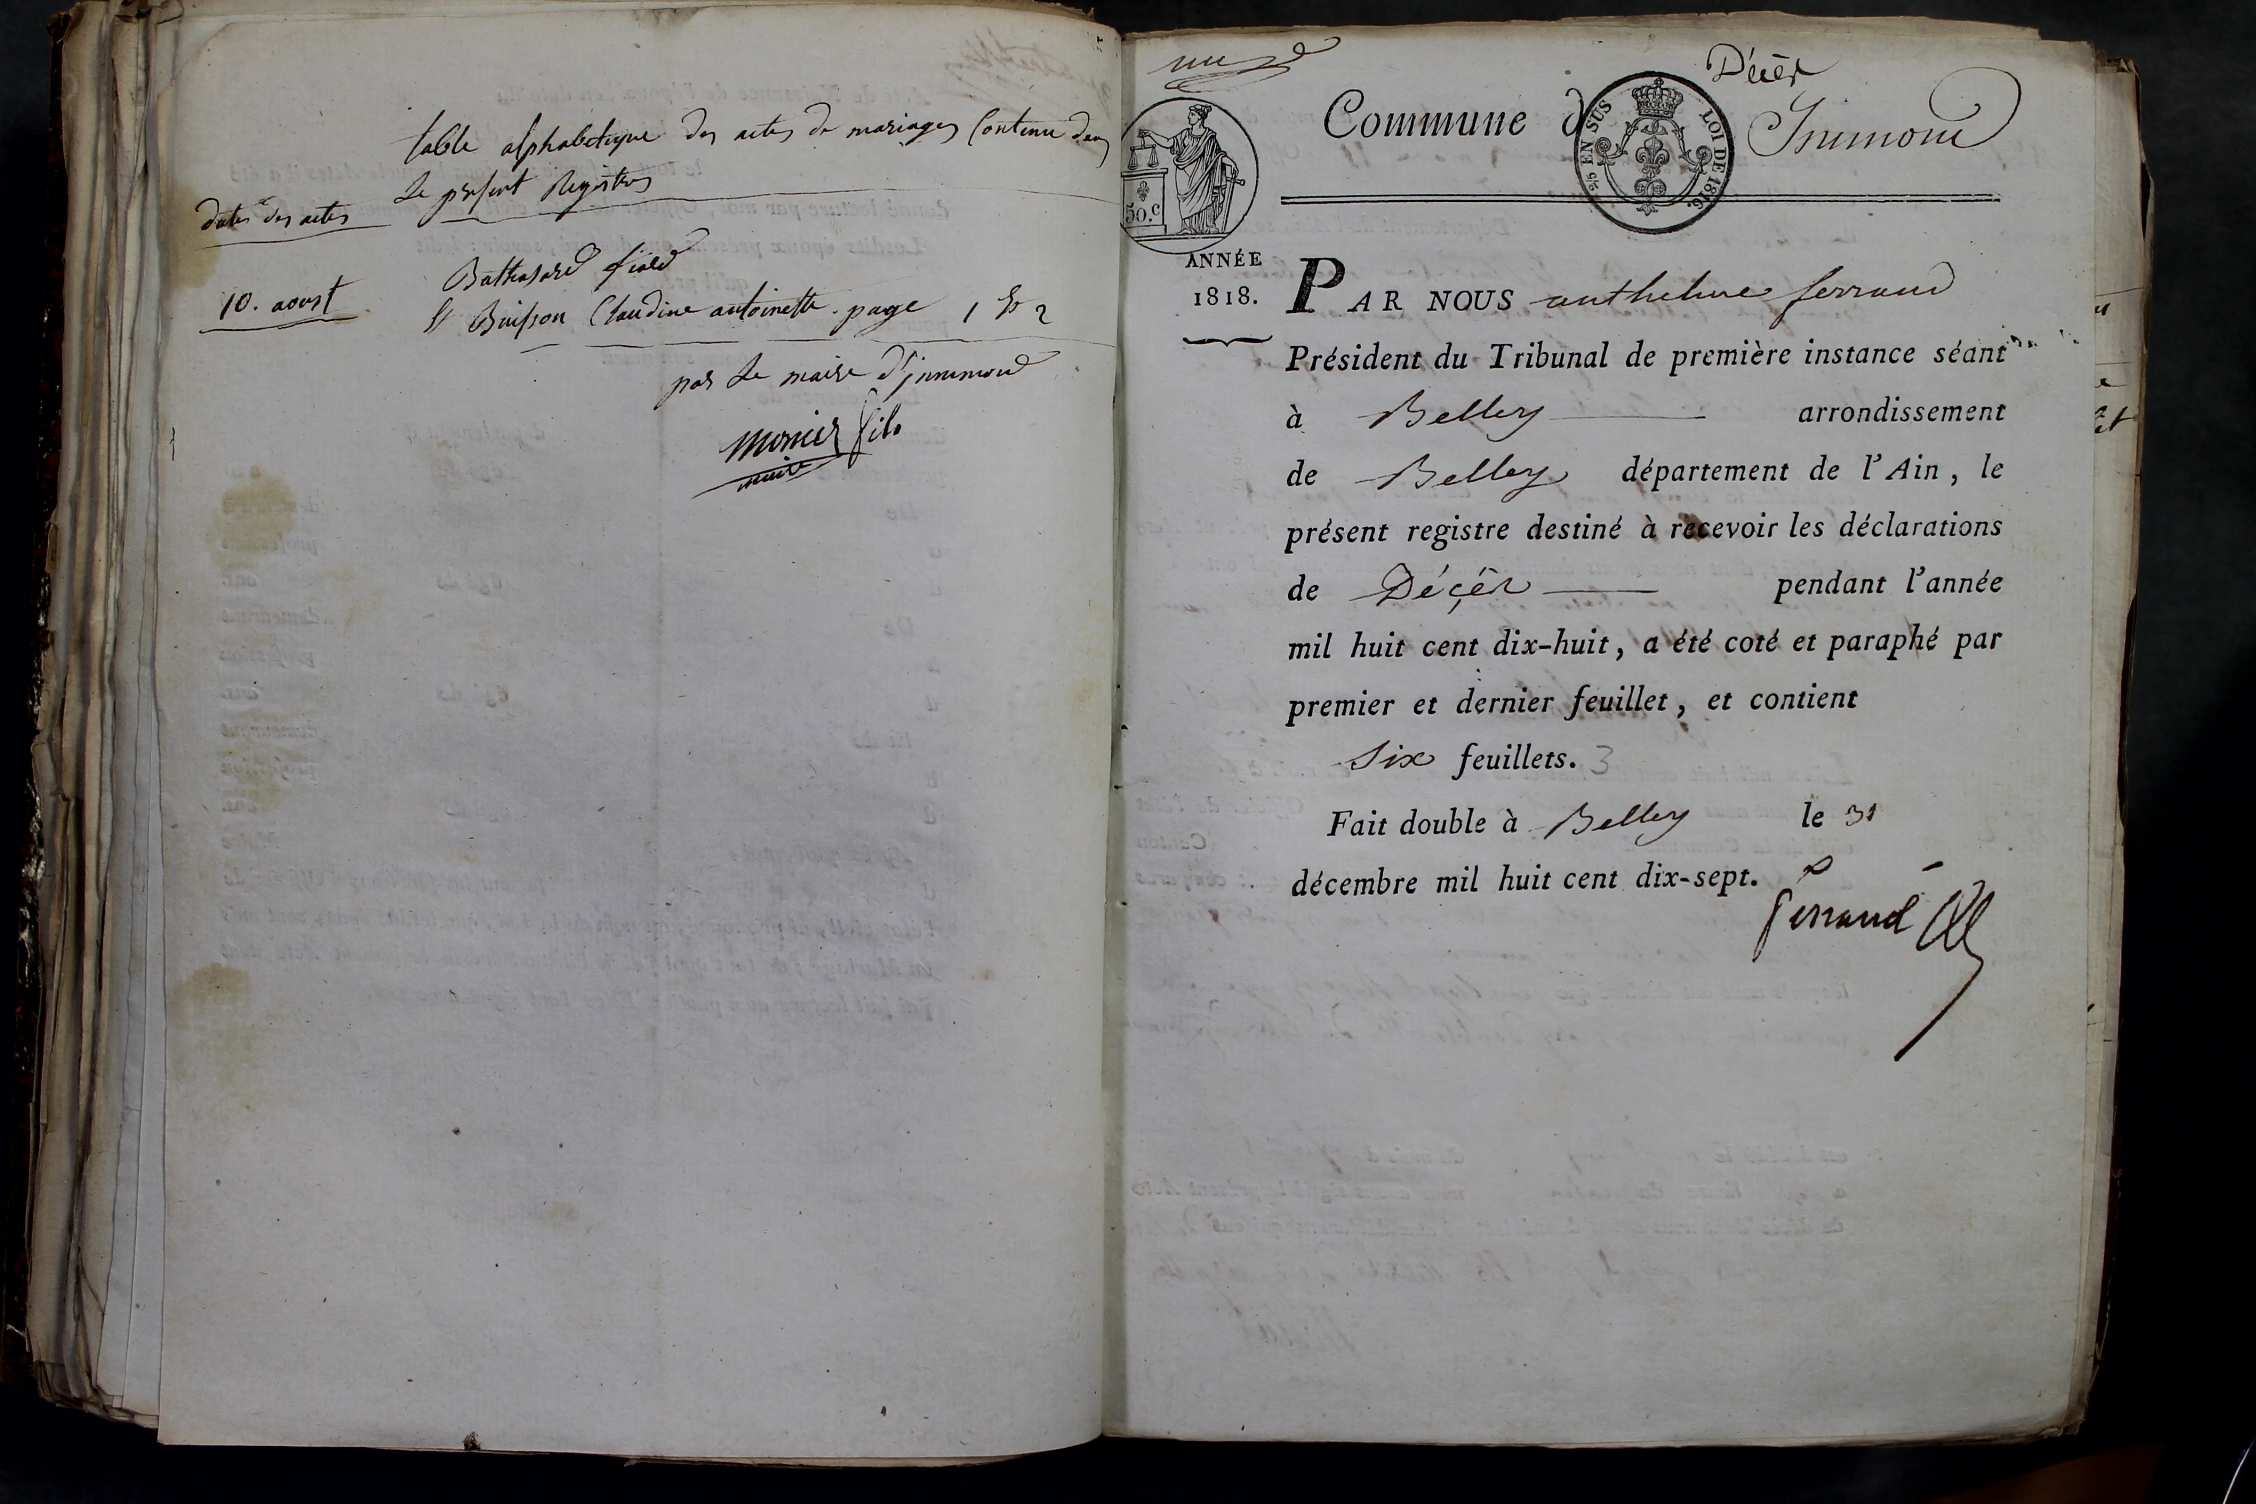 table alphabetique des actes de mariages Contenu dans
le present Registre
dates des actes
Balthasard fiard
10. aoust
& Buisson Claudine antoinette. page 1 & 2
par le maire d'jnnimond
monier fils
maire
Décès
Commune d Innimond
2/5 EN SUS
LOI DE 1816.
50.c
ANNÉE
1818.
PAR NOUS anthelme ferrand
Président du Tribunal de première instance séant
à Belley arrondissement
de Belley département de l'Ain, le
présent registre destiné à recevoir les déclarations
de Décès pendant l'année
mil huit cent dix-huit, a été coté et paraphé par
premier et dernier feuillet, et contient
Six feuillets. 3
Fait double à Belley le 31
décembre mil huit cent dix-sept.
ferrand